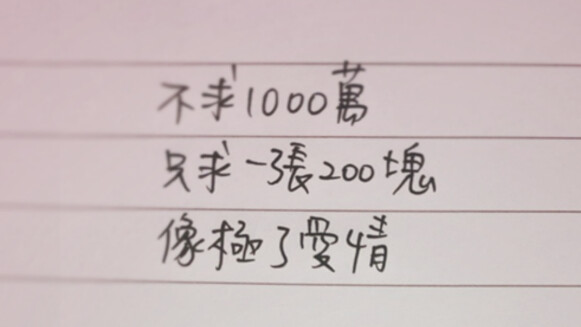 不求1000萬
只求一張200塊
像極了愛情